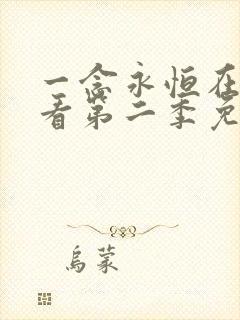 一念永恒在
看第二季免
乌蒙